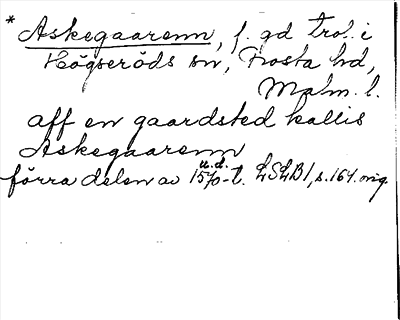 * Askegaarenn, f. gd trol. i
Högseröds sn, Frosta hd,
Malm. l.
aff en gaardsted kallis
Askegaarenn
u.d.
förra delen av 1570-t. LSLB 1, s. 164. orig.